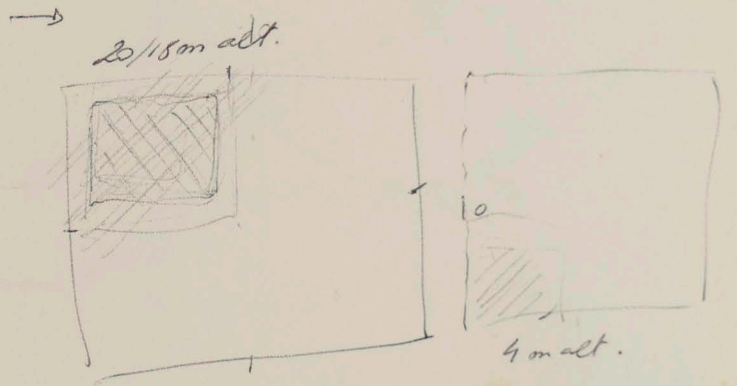 20/18 m alt.
o
4 m alt.